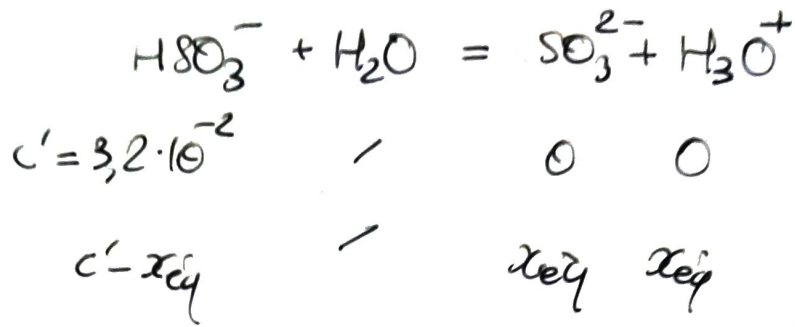 HSO₃⁻ + H₂O = SO₃²⁻ + H₃O⁺
c' = 3,2·10⁻² / 0 0
c' - xéq / xéq xéq